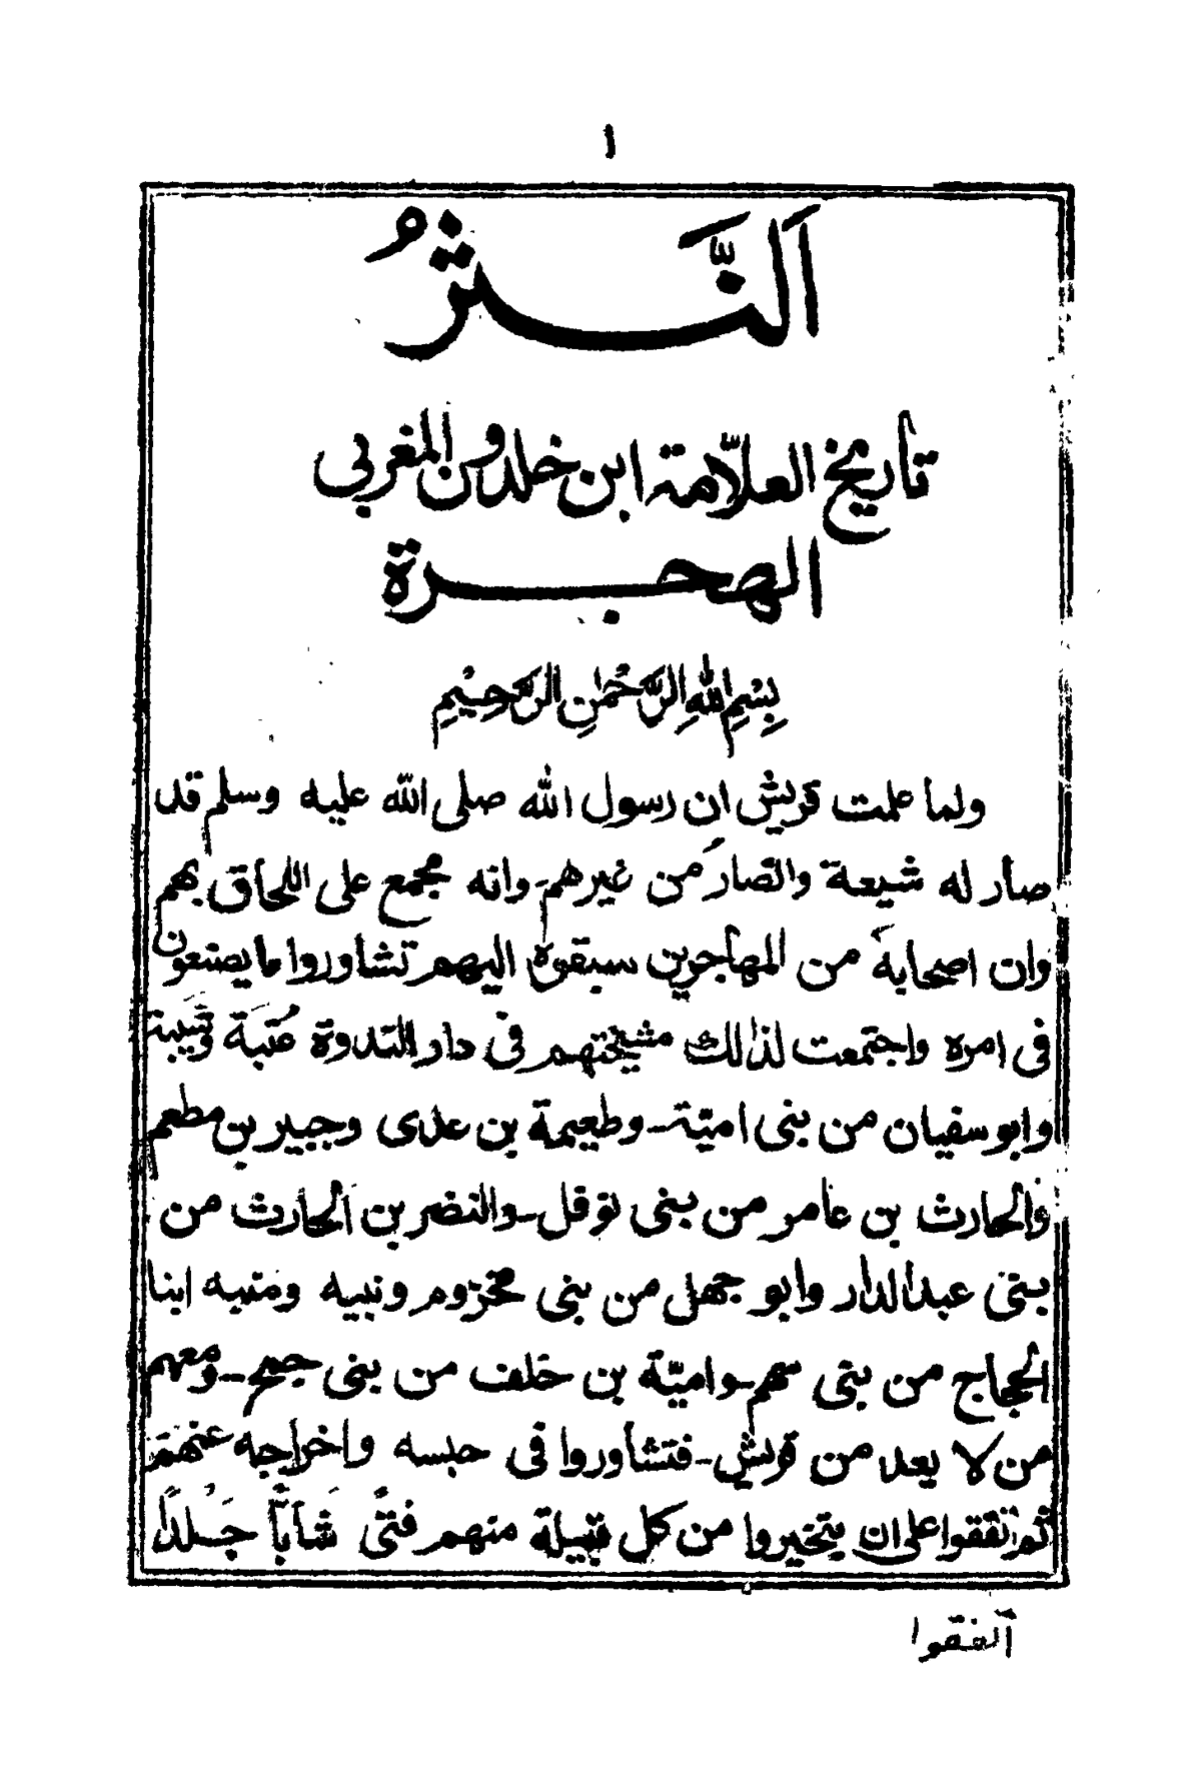 ١
اَلنَّثْرُ
تاريخ العلّامة ابن خلدون المغربي
الهجرة
بِسْمِ اللهِ الرَّحْمٰنِ الرَّحِيْمِ
ولما علمت قريش ان رسول الله صلى الله عليه وسلم قد
صار له شيعة وانصار من غيرهم وانه مجمع على اللحاق بهم
وان اصحابه من المهاجرين سبقوه اليهم تشاوروا ما يصنعون
فى امره واجتمعت لذالك مشيختهم فى دار الندوة عُتبَة وشَيبة
وابو سفيان من بنى اميّة ـ وطعيمة بن عدى وجبير بن مطعم
والحارث بن عامر من بنى نوفل ـ والنضر بن الحارث من
بنى عبد الدار وابو جهل من بنى مخزوم ونبيه ومنبه ابنا
الحجاج من بنى سهم ـ واميّة بن خلف من بنى جمح ـ ومعهم
من لا يعد من قريش ـ فتشاوروا فى حبسه واخراجه عنهم
ثم اتفقوا على ان يتخيروا من كل قبيلة منهم فتىً شَابّاً جَلْدًا
اتفقوا